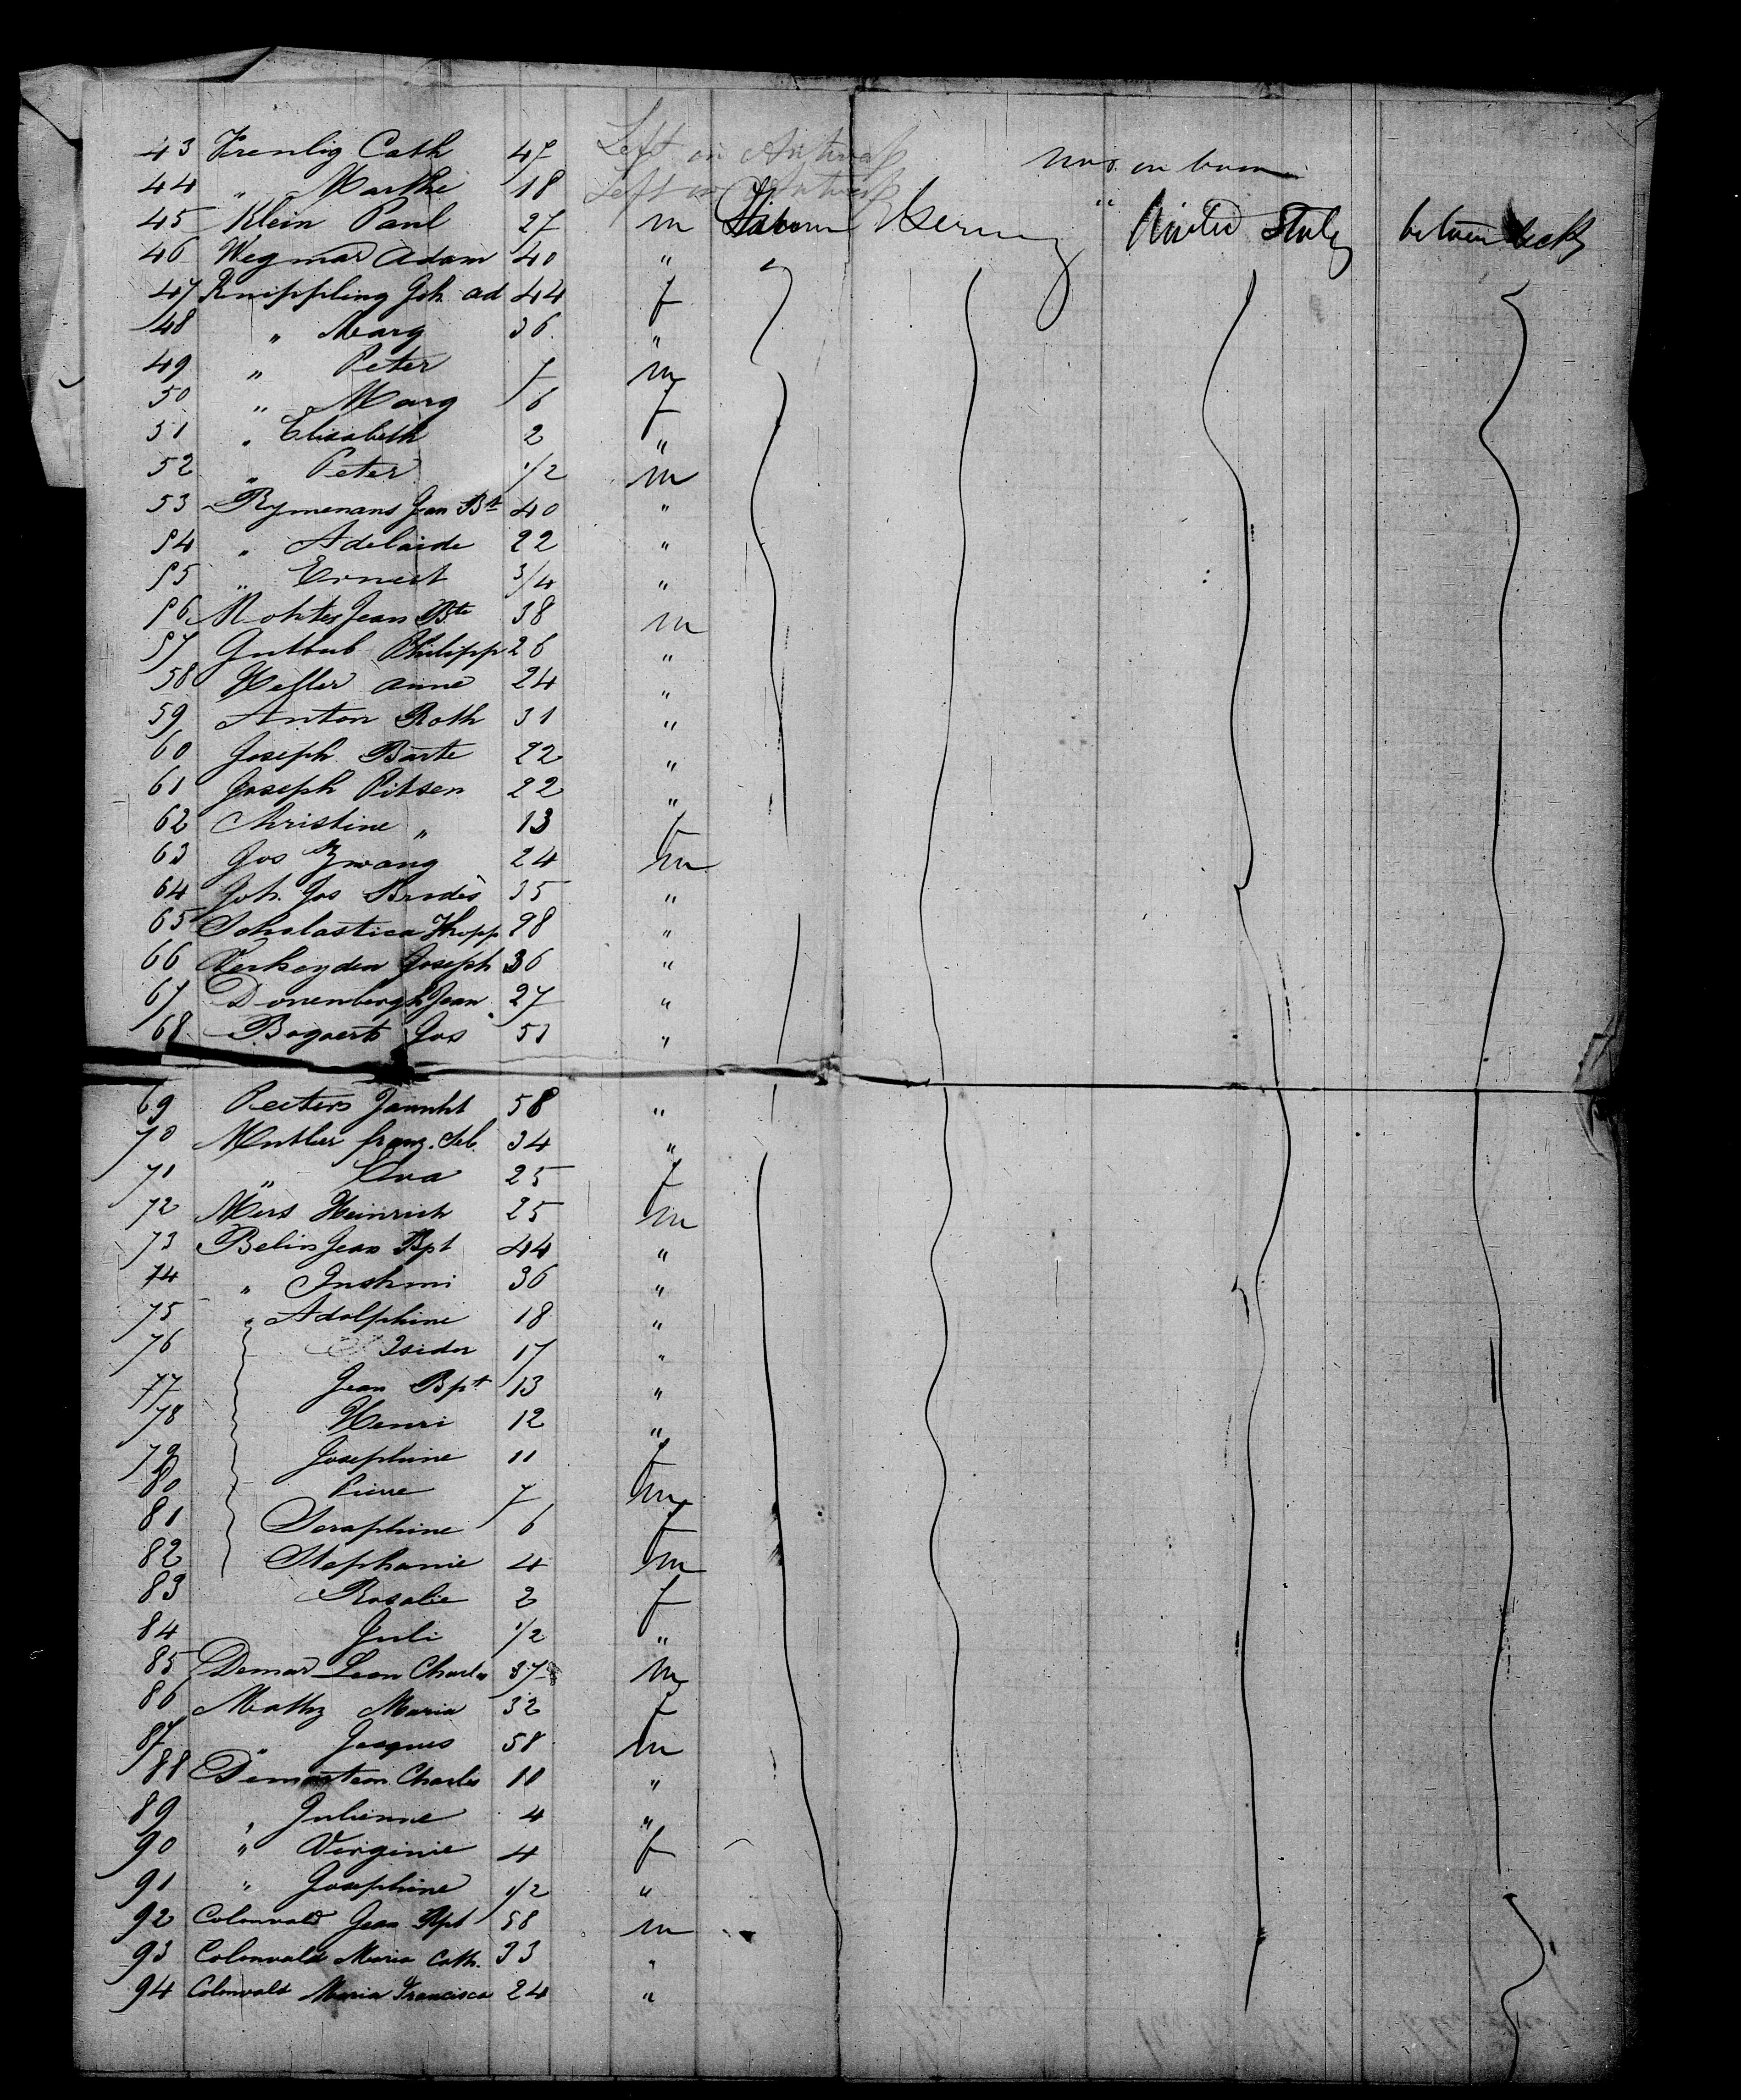 43 Krenlig Cath 47 Left in Antwerp not on board
44 " Marthe 18 Left in Antwerp
45 Klein Paul 27 m Germany United States between decks
46 Wegmar Adam 40 "
47 Knippling Joh ad 44 f
48 " Marg 36 "
49 " Peter 7 m
50 " Marg 6 f
51 " Elisabeth 2 "
52 " Peter 1/2 m
53 Rymenans Jean Bte 40 "
54 " Adelaide 22 "
55 " Ernest 3/4 "
56 Mohtes Jean Bte 38 m
57 Gutbub Philipp 26 "
58 Heller Anne 24 "
59 Anton Roth 31 "
60 Joseph Barte 22 "
61 Joseph Pitsen 22 "
62 Christine " 13 f
63 Jos Zwang 24 m
64 Joh. Jos Brodes 35 "
65 Scholastica Knopp 28 "
66 Verheyden Joseph 36 "
67 Donenbergh Jean 27 "
68 Bogaerts Jos 51 "
69 Peeters 58 "
70 Mutler franz. Seb. 34 "
71 " Eva 25 f
72 Mers Heinrich 25 m
73 Belin Jean Bpt 44 "
74 " 36 "
75 " Adolphine 18 "
76 Isidor 17 "
77 Jean Bpt 13 "
78 Henri 12 "
79 Josephine 11 f
80 Pierre 7 m
81 Seraphine 6 f
82 Stephanie 4 m
83 Rosalie 2 f
84 Juli 1/2 "
85 Demar Leon Charles 37 m
86 Mathy Maria 32 f
87 " Jacques 58 m
88 Demarteau Charles 11 "
89 " Julienne 4 "
90 " Virginie 4 f
91 " Josephine 1/2 "
92 Colonvald Jean Bpt 58 m
93 Colonvald Maria Cath. 33 "
94 Colonvald Maria Francisca 24 "